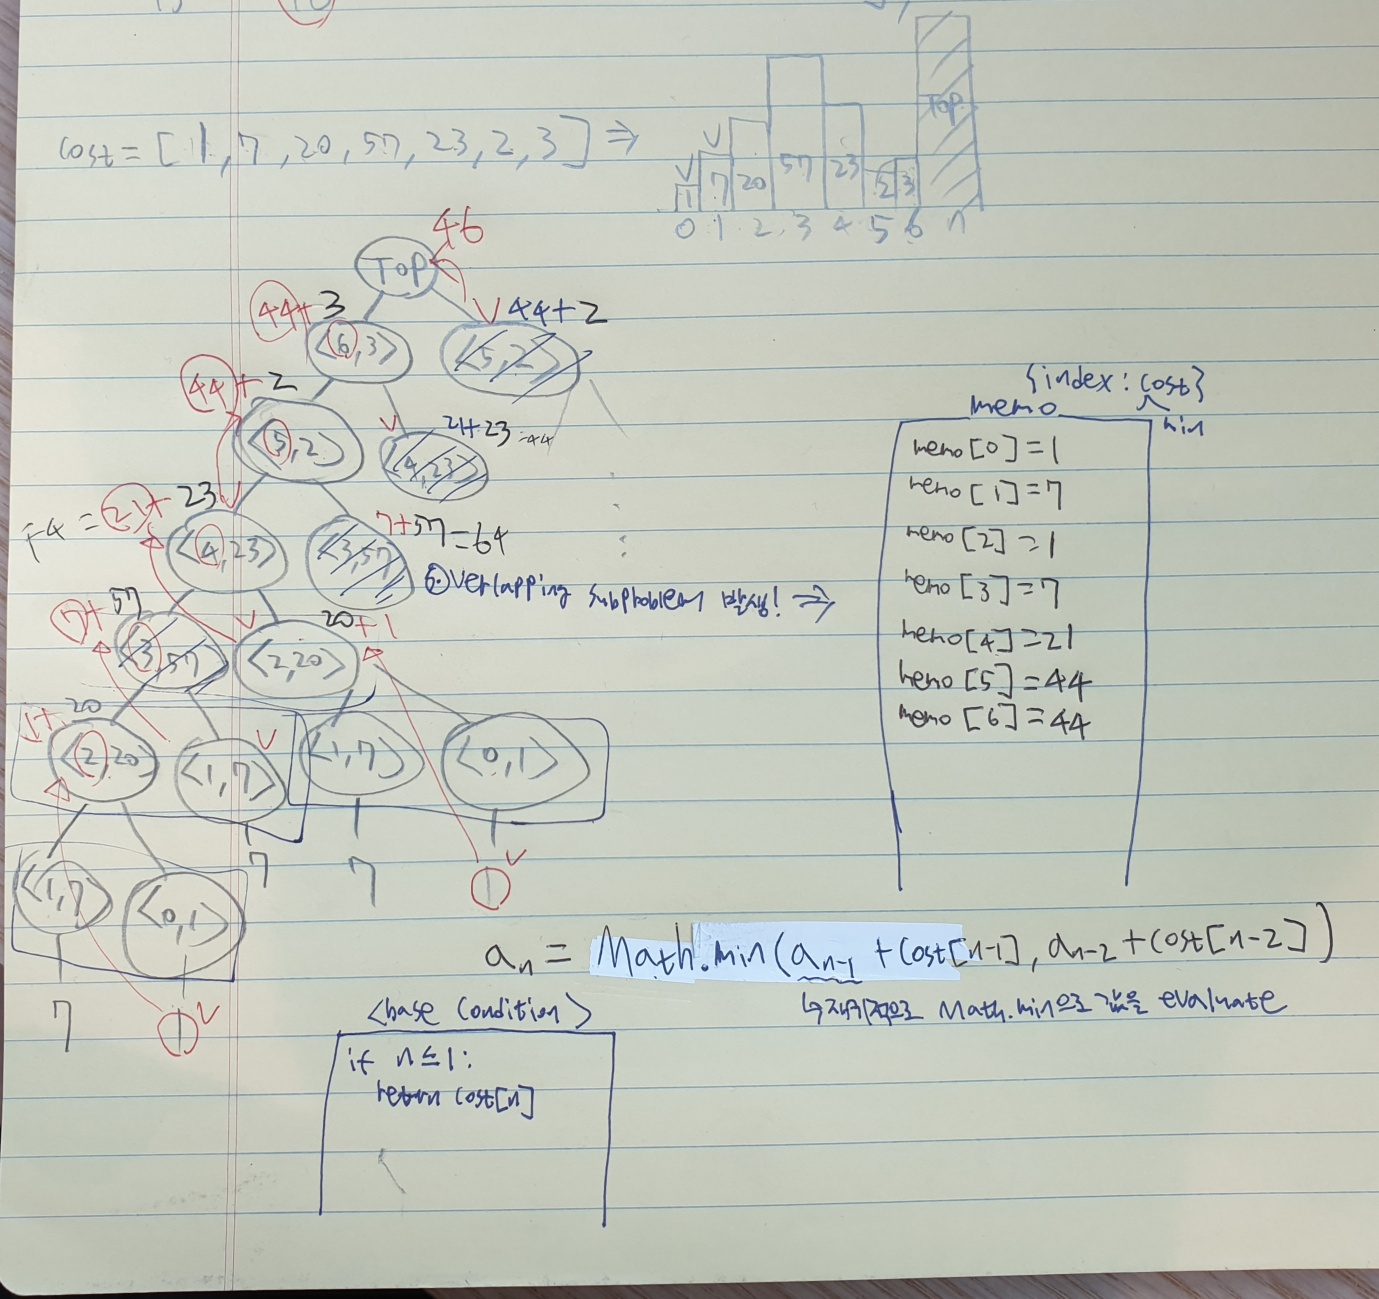 cost = [1, 7, 20, 57, 23, 2, 3] ⇒
1 7 20 57 23 2 3 Top
0 1 2 3 4 5 6 n
46
Top
44+3
44+2
<6,3>
<5,2>
44+2
<5,2>
21+23=44
<4,23>
21+23
<4,23>
7+57=64
<3,57>
Overlapping subproblem 발생! ⇒
7+57
<3,57>
20+1
<2,20>
1+20
<2,20>
<1,7>
<1,7>
<0,1>
7
7
1
<1,7>
<0,1>
7
1
{index: cost}
min
memo
memo[0]=1
memo[1]=7
memo[2]=1
memo[3]=7
memo[4]=21
memo[5]=44
memo[6]=44
an = Math.min(an-1 + cost[n-1], an-2 + cost[n-2])
↳재귀적으로 Math.min으로 값을 evaluate
<base condition>
if n≤1:
return cost[n]